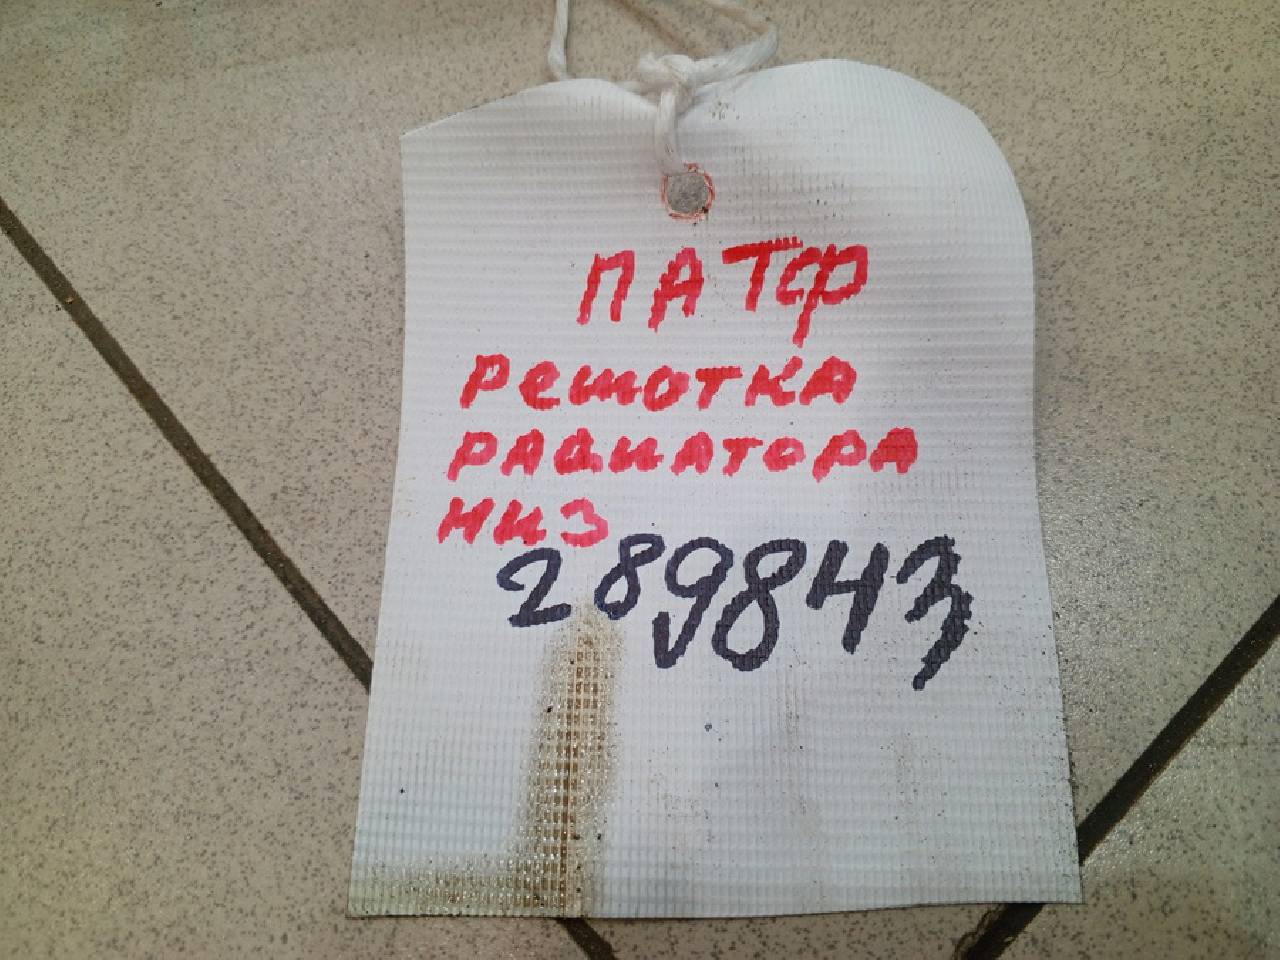 ПАТФ
решотка
радиатора
низ
289843